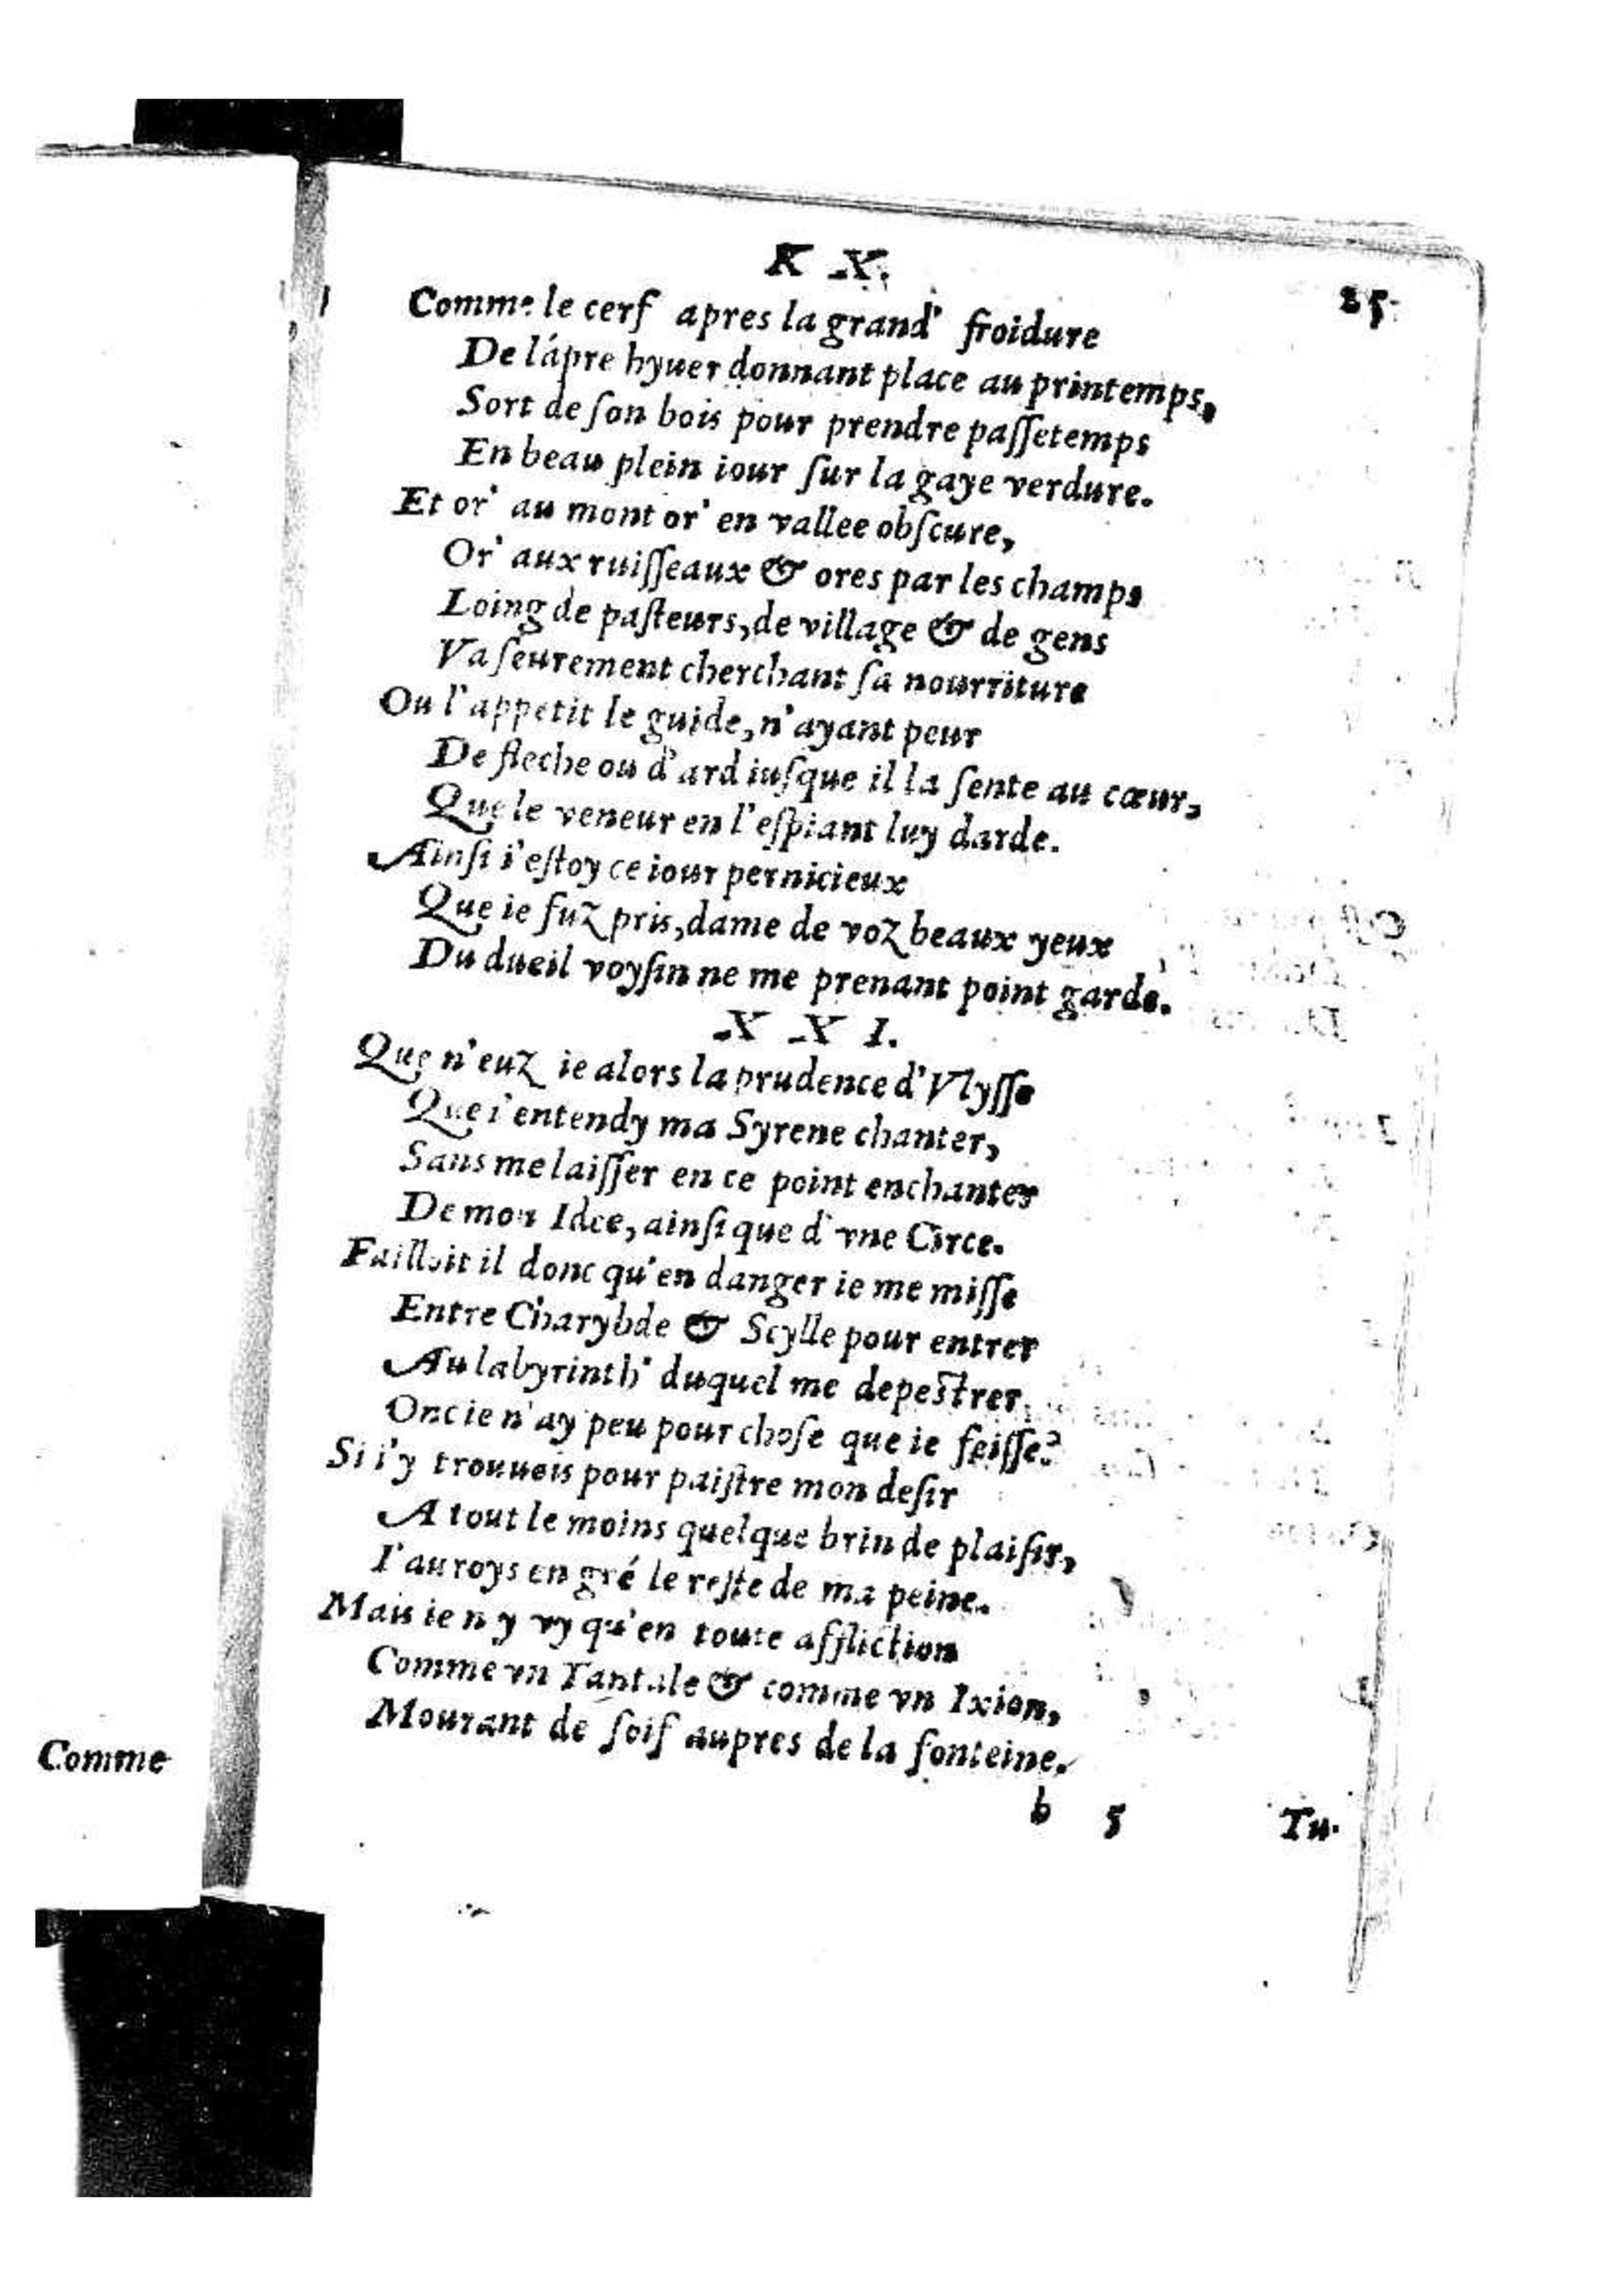 X X.
25.
Comme le cerf apres la grand' froidure
De l'ápre hyuer donnant place au printemps,
Sort de ſon bois pour prendre paſſetemps
En beau plein iour ſur la gaye verdure.
Et or' au mont or' en vallee obſcure,
Or' aux ruiſſeaux & ores par les champs
Loing de paſteurs, de village & de gens
Va ſeurement cherchant ſa nourriture
Ou l'appetit le guide, n'ayant peur
De fleche ou d'ard iuſque il la ſente au cœur,
Que le veneur en l'eſpiant luy darde.
Ainſi i'eſtoy ce iour pernicieux
Que ie fuz pris, dame de voz beaux yeux
Du dueil voyſin ne me prenant point garde.
X X I.
Que n'euz ie alors la prudence d'Vlyſſe
Que i'entendy ma Syrene chanter,
Sans me laiſſer en ce point enchanter
De mon Idee, ainſi que d'vne Circe.
Failloit il donc qu'en danger ie me miſſe
Entre Charybde & Scylle pour entrer
Au labyrinth' duquel me depeſtrer
Onc ie n'ay peu pour choſe que ie feiſſe?
Si i'y trouuois pour paiſtre mon deſir
A tout le moins quelque brin de plaiſir,
I'auroys en gré le reſte de ma peine.
Mais ie n'y vy qu'en toute affliction
Comme vn Tantale & comme vn Ixion,
Mourant de ſoif aupres de la fonteine.
b 5
Tu.
Comme